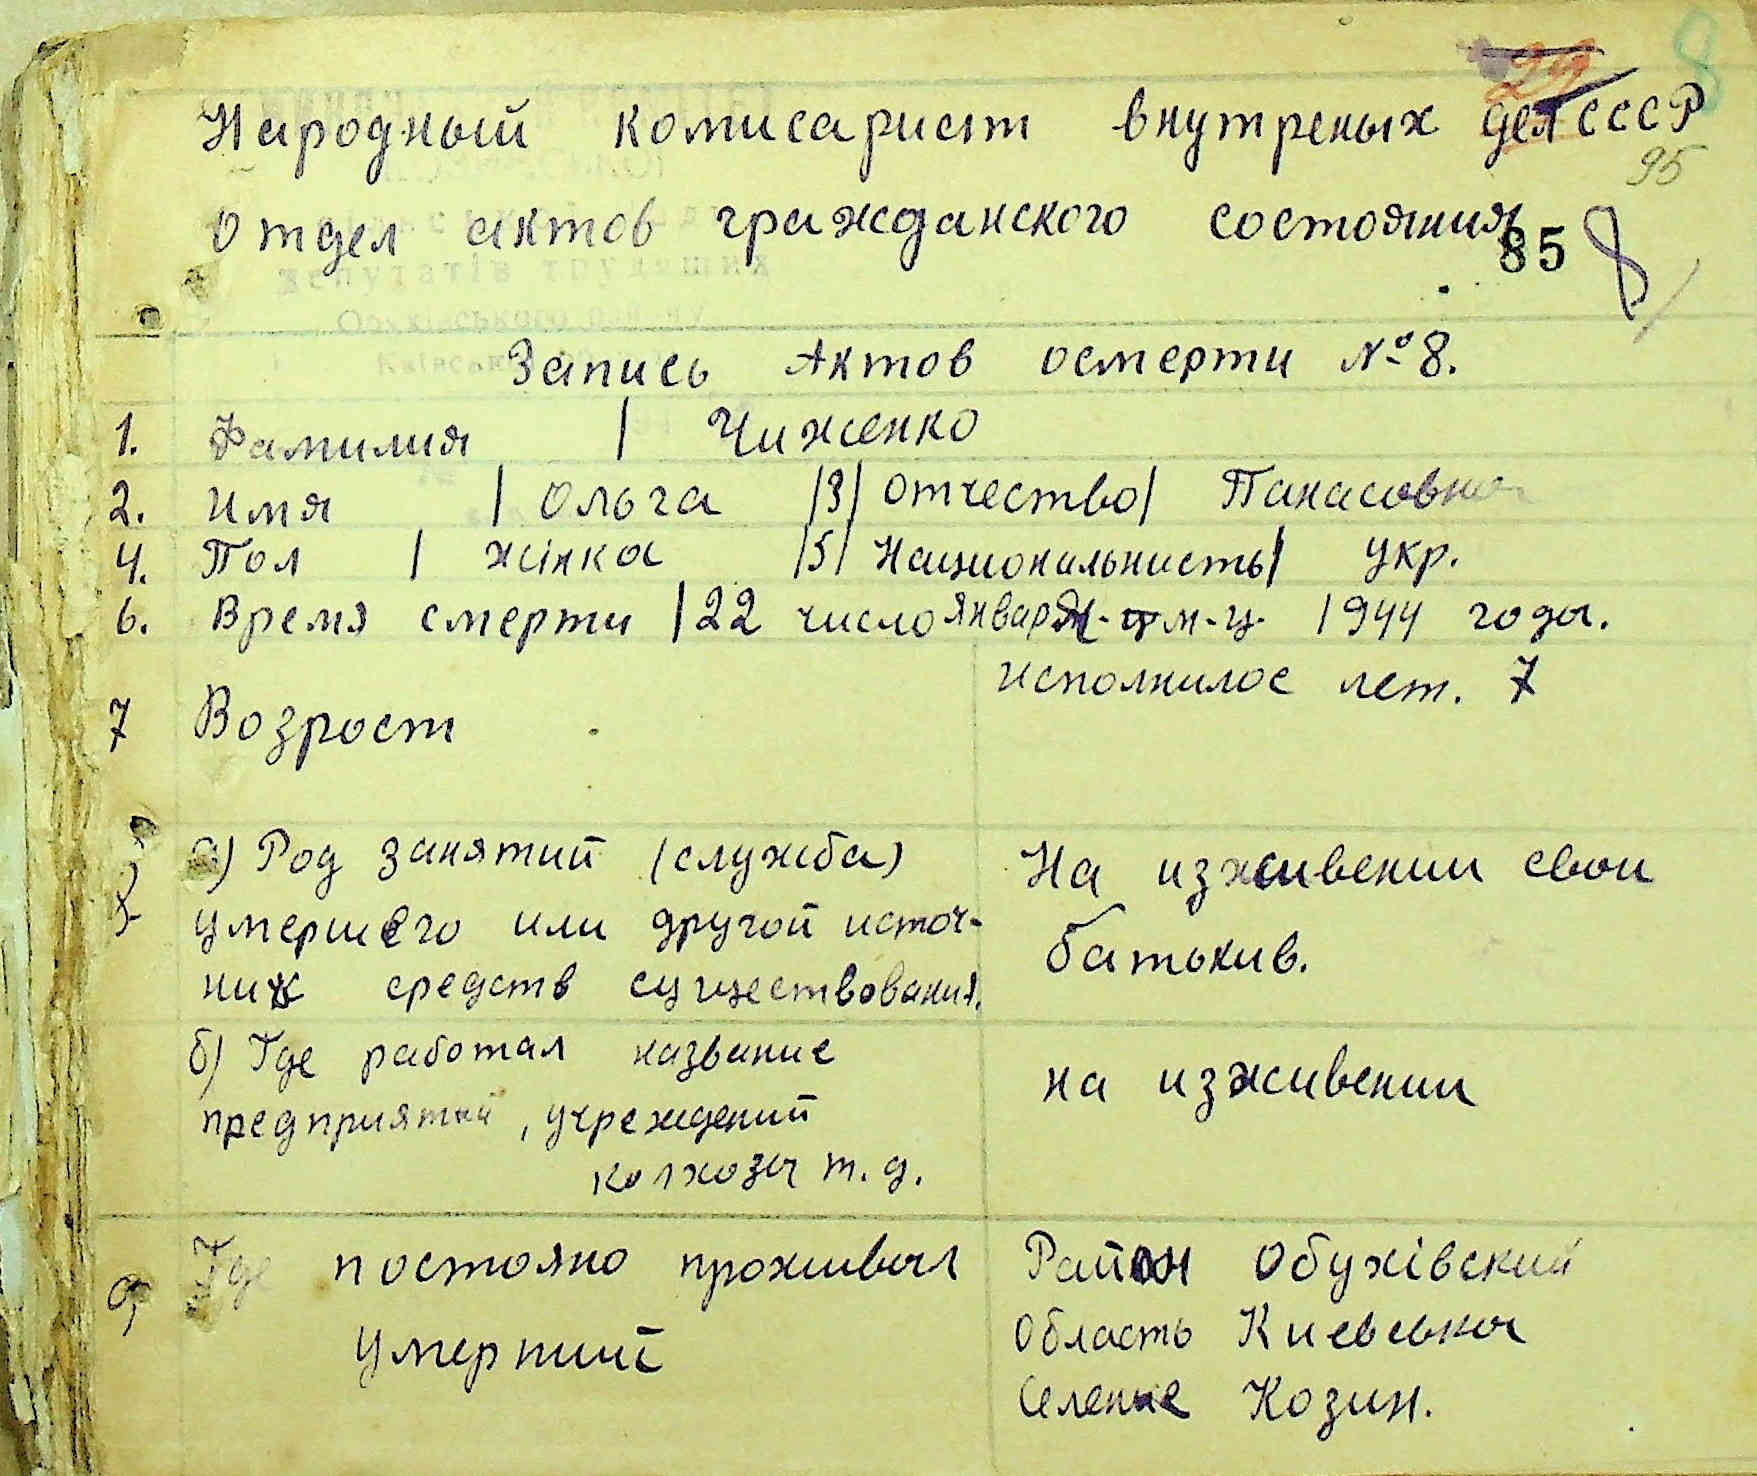 24 8
Народный комисариат внутреных дел СССР
95
Отдел актов гражданского состояния
85 8
депутатів трудящих
Запись Актов осмерти № 8.
1. Фамилия | Чиженко
2. Имя | Ольга |3| отчество| Панасовна
4. Пол | жінка |5| Национальнисть| укр.
6. Время смерти |22 число январ м-ц. 1944 года.
исполнилос лет. 7
7 Возраст
а) Род занятий (служба) На изживении свои
умершего или другой источ- батькив.
ник средств существования.
б) Где работал название на изживении
предприятий, учреждений
колхозы т.д.
9, Где постояно проживал Район Обухівский
умерший Область Киевська
Селение Козин.